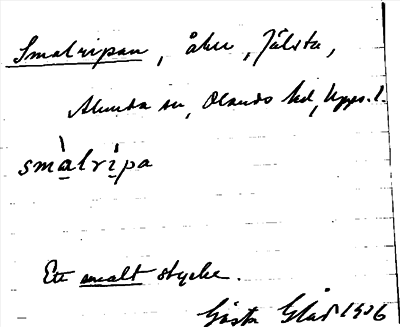 Smalripan, åker, Jälsta,
Alunda sn, Olands hd, Upps. l.
smàlrìpa
Ett smalt stycke.
Gösta Glas 1936